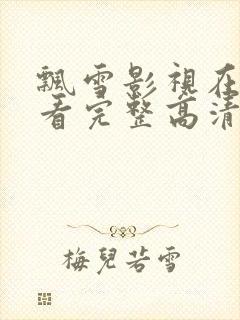 飄雪影視在
看完整高清
梅兒若雪